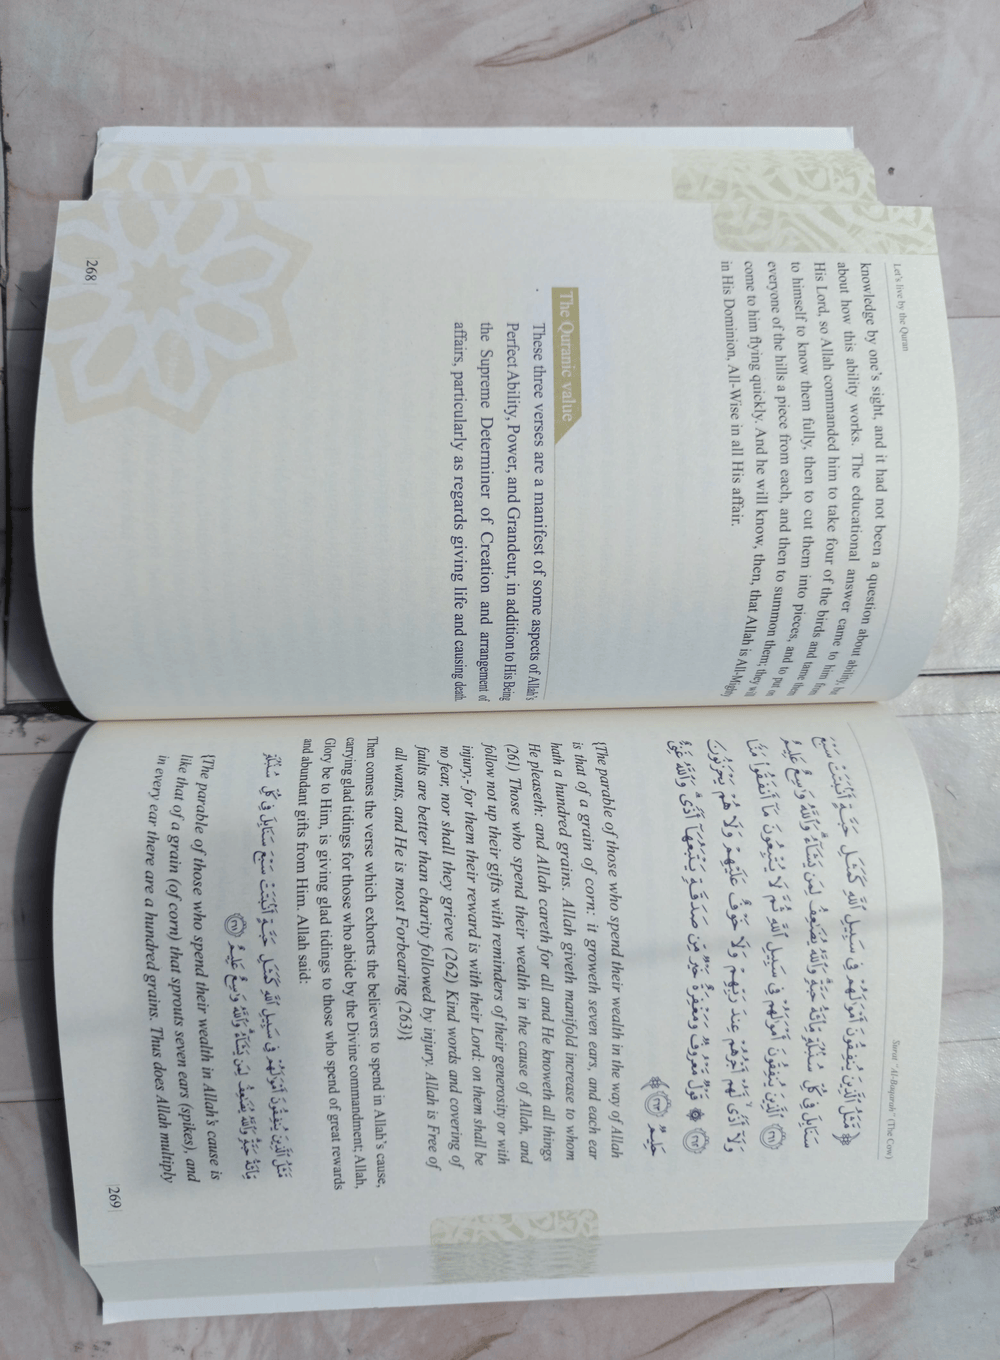 Let's live by the Quran
knowledge by one's sight, and it had not been a question about ability, but
about how this ability works. The educational answer came to him from
His Lord, so Allah commanded him to take four of the birds and tame them
to himself to know them fully, then to cut them into pieces, and to put on
everyone of the hills a piece from each, and then to summon them; they will
come to him flying quickly. And he will know, then, that Allah is All-Mighty
in His Dominion, All-Wise in all His affair.
The Quranic value
These three verses are a manifest of some aspects of Allah's
Perfect Ability, Power, and Grandeur, in addition to His Being
the Supreme Determiner of Creation and arrangement of
affairs, particularly as regards giving life and causing death.
268
Surat "Al-Baqarah" (The Cow)
﴿ مَّثَلُ ٱلَّذِينَ يُنفِقُونَ أَمْوَٰلَهُمْ فِى سَبِيلِ ٱللَّهِ كَمَثَلِ حَبَّةٍ أَنۢبَتَتْ سَبْعَ
سَنَابِلَ فِى كُلِّ سُنۢبُلَةٍ مِّا۟ئَةُ حَبَّةٍ وَٱللَّهُ يُضَٰعِفُ لِمَن يَشَآءُ وَٱللَّهُ وَٰسِعٌ عَلِيمٌ
﴿٢٦١﴾ ٱلَّذِينَ يُنفِقُونَ أَمْوَٰلَهُمْ فِى سَبِيلِ ٱللَّهِ ثُمَّ لَا يُتْبِعُونَ مَآ أَنفَقُوا۟ مَنًّا
وَلَآ أَذًى لَّهُمْ أَجْرُهُمْ عِندَ رَبِّهِمْ وَلَا خَوْفٌ عَلَيْهِمْ وَلَا هُمْ يَحْزَنُونَ
﴿٢٦٢﴾ ۞ قَوْلٌ مَّعْرُوفٌ وَمَغْفِرَةٌ خَيْرٌ مِّن صَدَقَةٍ يَتْبَعُهَآ أَذًى وَٱللَّهُ غَنِىٌّ
حَلِيمٌ ﴿٢٦٣﴾ ﴾
{The parable of those who spend their wealth in the way of Allah
is that of a grain of corn: it groweth seven ears, and each ear
hath a hundred grains. Allah giveth manifold increase to whom
He pleaseth: and Allah careth for all and He knoweth all things
(261) Those who spend their wealth in the cause of Allah, and
follow not up their gifts with reminders of their generosity or with
injury,- for them their reward is with their Lord: on them shall be
no fear, nor shall they grieve (262) Kind words and covering of
faults are better than charity followed by injury. Allah is Free of
all wants, and He is most Forbearing (263)}
Then comes the verse which exhorts the believers to spend in Allah's cause,
carrying glad tidings for those who abide by the Divine commandment; Allah,
Glory be to Him, is giving glad tidings to those who spend of great rewards
and abundant gifts from Him. Allah said:
مَّثَلُ ٱلَّذِينَ يُنفِقُونَ أَمْوَٰلَهُمْ فِى سَبِيلِ ٱللَّهِ كَمَثَلِ حَبَّةٍ أَنۢبَتَتْ سَبْعَ سَنَابِلَ فِى كُلِّ سُنۢبُلَةٍ
مِّا۟ئَةُ حَبَّةٍ وَٱللَّهُ يُضَٰعِفُ لِمَن يَشَآءُ وَٱللَّهُ وَٰسِعٌ عَلِيمٌ ﴿٢٦١﴾
{The parable of those who spend their wealth in Allah's cause is
like that of a grain (of corn) that sprouts seven ears (spikes), and
in every ear there are a hundred grains. Thus does Allah multiply
269